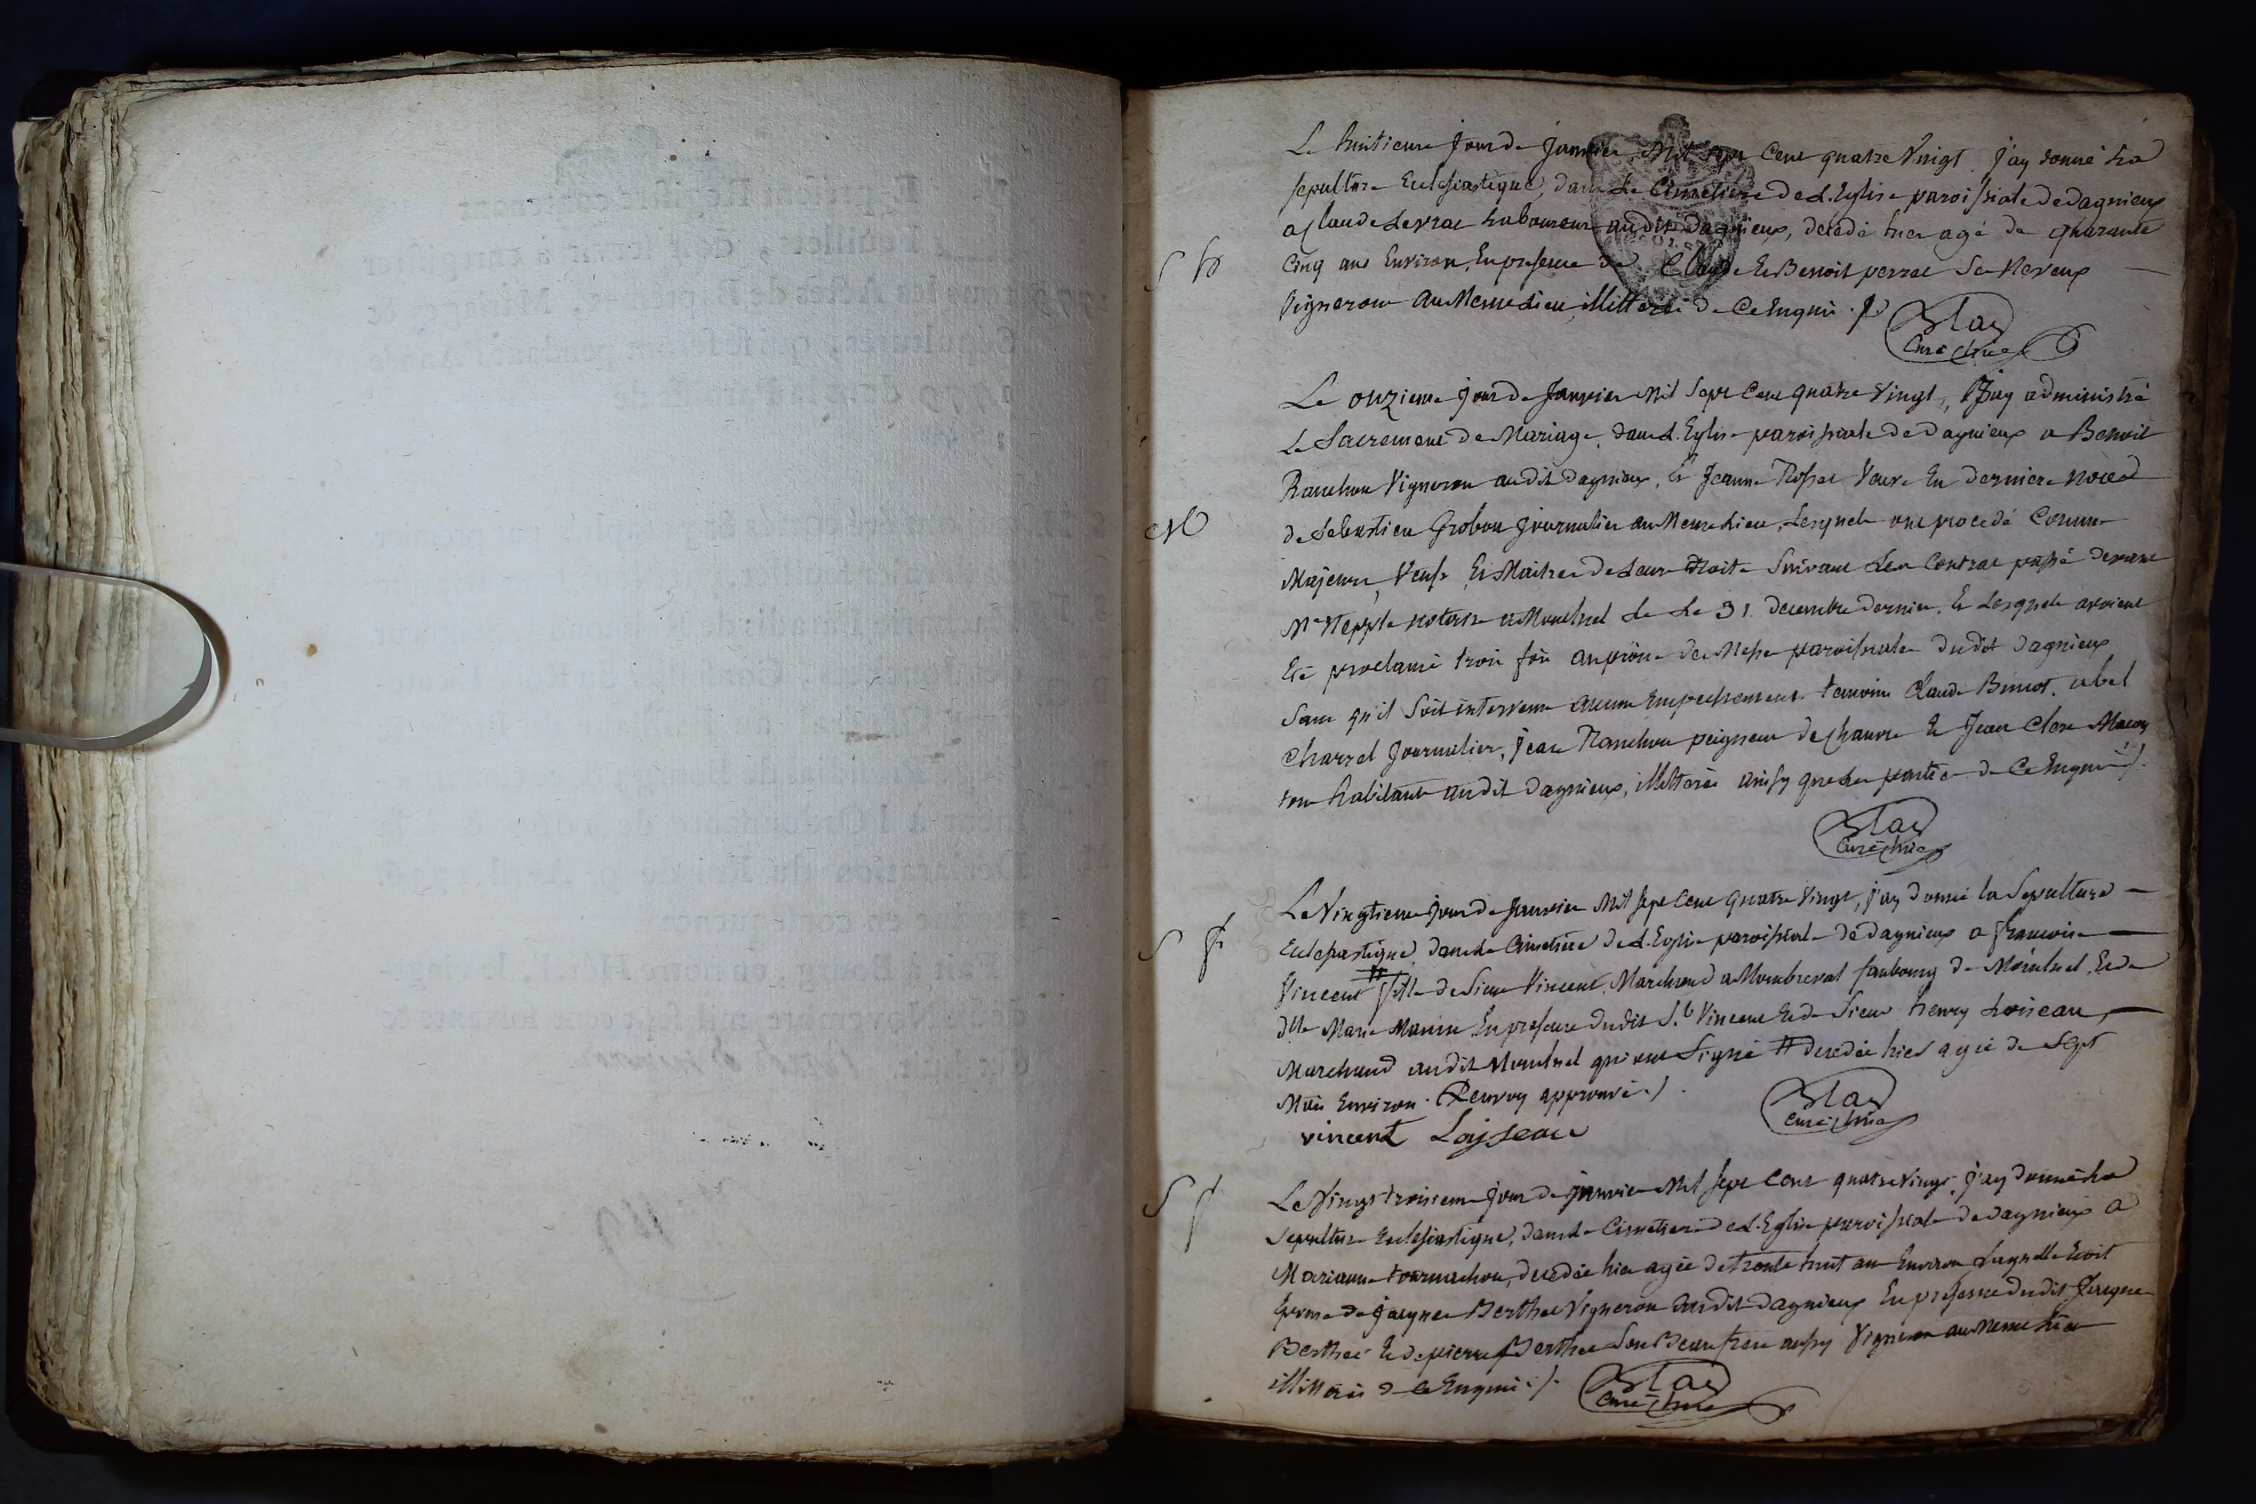 Le huitieme jour de janvier Mil sept Cent quatre Vingt j'ay donné La
sepulture Eclesiastique, dans Le Cimetiere de L'Eglise paroissiale de dagnieux
a Claude Levrat Laboureur audit dagnieux, décédé hier agé de quarante
S h
Cinq ans Environ, En presence de Claude Et Benoit perret Ses Neveux
Vignerons Au Meme Lieu, illitteré de Ce Enquis ./.
Curé
Le onzieme jour de Janvier Mil Sept Cent quatre Vingt, J'ay administré
Le Sacrement de Mariage, dans L'Eglise paroissiale de dagnieux a Benoit
Ranchon Vigneron audit dagnieux, Et Jeanne Veuve En derniere Noces
M
de Sebastien Grobon journalier au Meme Lieu, Lesquels ont procedé Comme
Majeurs, Veufs, Et Maitres de Leurs Droits Suivant Leur Contrat passé devant
Me notaire a Montluel Le Le 31 decembre dernier, Et Lesquels avoient
Eté proclamé trois fois au prône des Messes paroissiales du dit dagnieux
Sans qu'il Soit intervenu aucun Empechement temoins Claude abel
Charrel Journalier, Jean Ranchon peigneur de Chanvre Et Jean
tous habitants audit dagnieux, illitterés ainsy que Les parties de Ce Enquis ./.
Curé
Le Vingtieme jour de Janvier Mil sept Cent quatre Vingt, j'ay donné la Sepulture
S f
Eclesiastique, dans Le Cimetiere de L'Eglise paroissiale de dagnieux a francoise
Vincent # fille de Sieur Vincent, Marchand a faubourg de Montluel, Et de
dlle Marie En presence dudit Sr Vincent Et de Sieur henry Loiseau,
Marchand audit Montluel qui ont Signé # decedée hier agée de Sept
Mois Environ. Renvoy approuvé ./.
vincent Loyseau
Curé
S f
Le Vingt troisieme jour de janvier Mil sept Cent quatre Vingt, j'ay donné La
Sepulture Eclesiastique, dans Le Cimetiere de L'Eglise paroissiale de dagnieux a
Marianne tournachon, decedée hier agée de trente huit ans Environ Laquelle Etoit
Epouse de Jacques Berthet Vigneron audit dagnieux En presence dudit Jacques
Berthet Et de pierre Berthet Son Beaufrere aussy Vigneron au Meme Lieu
illitterés de Ce Enquis ./.
Curé